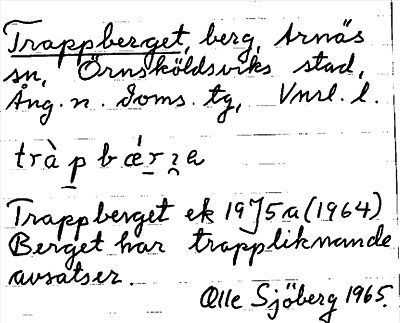 Trappberget, berg, Arnäs
sn, Örnsköldsviks stad,
Ång. n. doms. tg, Vnrl. l.
Trappberget ek 19 J5a (1964)
Berget har trappliknande
avsatser.
Olle Sjöberg 1965.